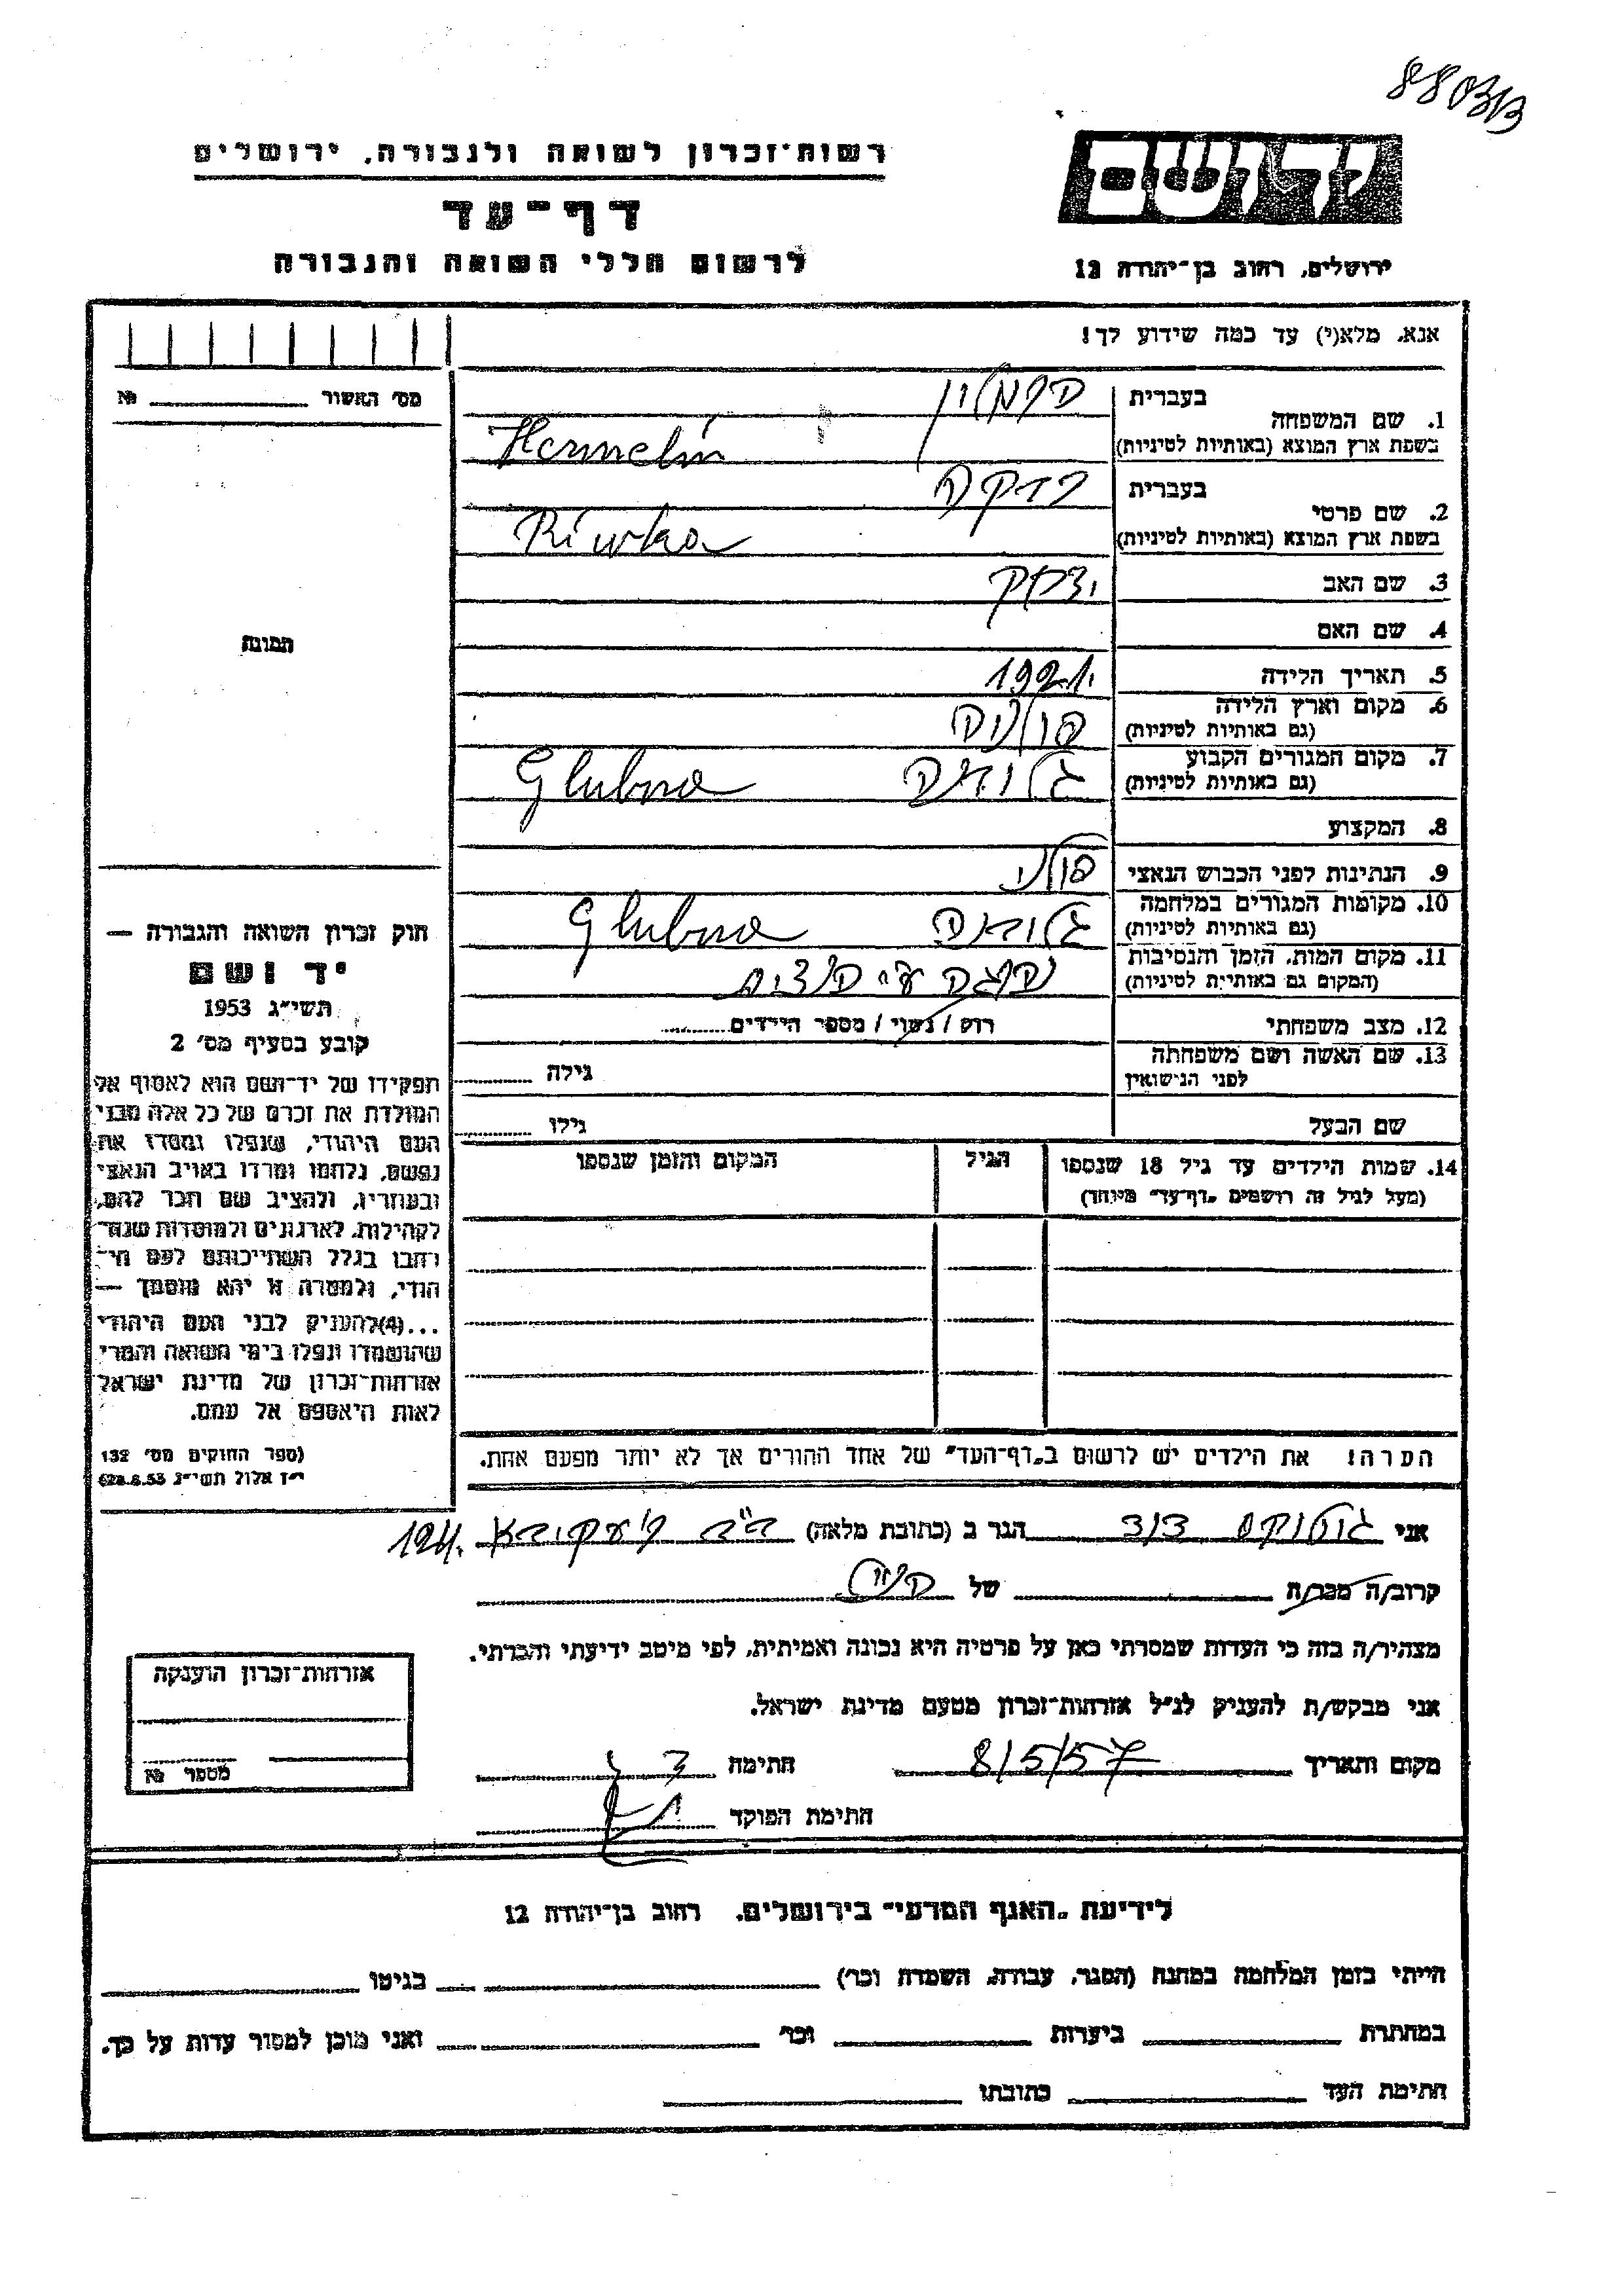 880313
רשות־זכרון לשואה ולגבורה, ירושלים
דף־עד
לרשום חללי השואה והגבורה
יד ושם
ירושלים, רחוב בן־יהודה 12
אנא, מלא(י) עד כמה שידוע לך!
מס׳ האשור № 
1. שם המשפחה
בעברית הרמלין
בשפת ארץ המוצא (באותיות לטיניות) Hermelin
2. שם פרטי
בעברית רבקה
בשפת ארץ המוצא (באותיות לטיניות) Riwka
3. שם האב יצחק
4. שם האם
5. תאריך הלידה 1921
6. מקום וארץ הלידה פולניה
(גם באותיות לטיניות)
7. מקום המגורים הקבוע Glubna
(גם באותיות לטיניות)
8. המקצוע
9. הנתינות לפני הכבוש הנאצי פולני
10. מקומות המגורים במלחמה Glubna
(גם באותיות לטיניות)
11. מקום המות, הזמן והנסיבות
(המקום גם באותיות לטיניות)
12. מצב משפחתי רווק / נשוי / מספר הילדים
13. שם האשה ושם משפחתה גילה
לפני הנישואין
שם הבעל גילו
14. שמות הילדים עד גיל 18 שנספו הגיל המקום והזמן שנספו
(מעל לגיל זה רושמים „דף־עד״ מיוחד)
הערה! את הילדים יש לרשום ב„דף־העד״ של אחד ההורים אך לא יותר מפעם אחת.
תמונה
חוק זכרון השואה והגבורה —
יד ושם
תשי״ג 1953
קובע בסעיף מס׳ 2
תפקידו של יד־ושם הוא לאסוף אל
המולדת את זכרם של כל אלה מבני
העם היהודי, שנפלו ומסרו את
נפשם, נלחמו ומרדו באויב הנאצי
ובעוזריו, ולהציב שם וזכר להם,
לקהילות, לארגונים ולמוסדות שנח־
רבו בגלל השתייכותם לעם הי־
הודי, ולמטרה זו יהא מוסמך —
...(4)להעניק לבני העם היהודי
שהושמדו ונפלו בימי השואה והמרי
אזרחות־זכרון של מדינת ישראל
לאות היאספם אל עמם.
(ספר החוקים מס׳ 132
י״ז אלול תשי״ג 28.8.53)
אני דוד הגר ב (כתובת מלאה) 124
קרוב/ה מכר/ה של
מצהיר/ה בזה כי העדות שמסרתי כאן על פרטיה היא נכונה ואמיתית, לפי מיטב ידיעתי והכרתי.
אני מבקש/ת להעניק לנ״ל אזרחות־זכרון מטעם מדינת ישראל.
מקום ותאריך 8/5/57 חתימה
חתימת הפוקד
אזרחות־זכרון הוענקה
מספר №
לידיעת „האגף המדעי״ בירושלים, רחוב בן־יהודה 12
הייתי בזמן המלחמה במחנה (הסגר, עבודה, השמדה וכו׳) בגיטו
במחתרת ביערות וכו׳ ואני מוכן למסור עדות על כך.
חתימת העד כתובתו